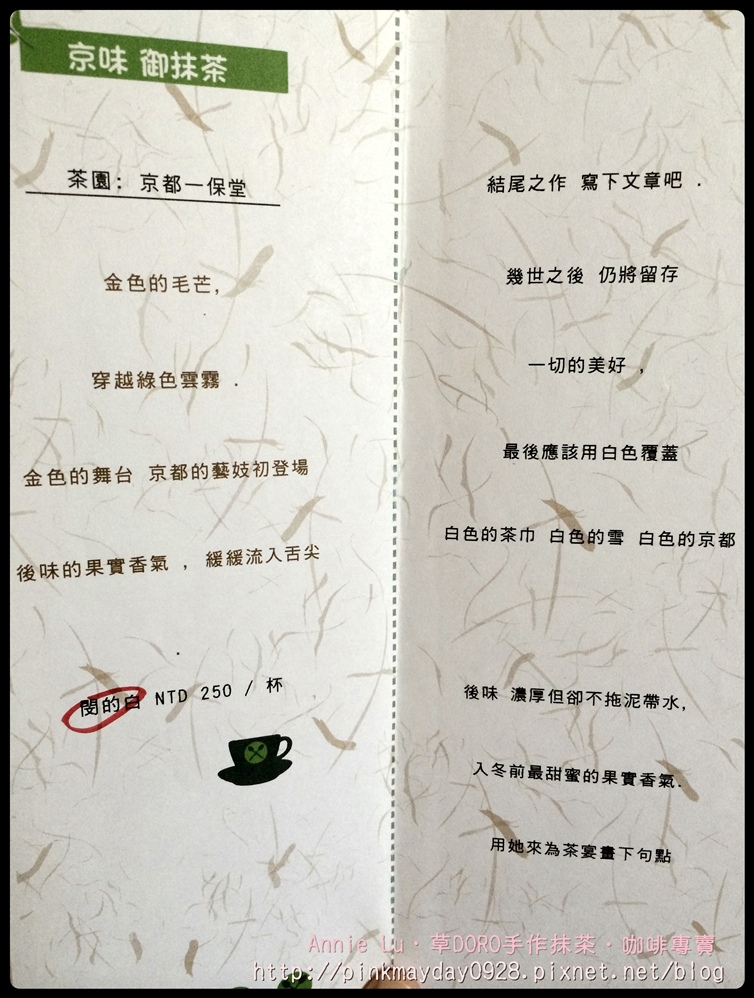 京味 御抹茶
茶園: 京都一保堂
金色的毛芒,
穿越綠色雲霧 .
金色的舞台 京都的藝妓初登場
後味的果實香氣 , 緩緩流入舌尖
閔的白 NTD 250 / 杯
結尾之作 寫下文章吧 .
幾世之後 仍將留存
一切的美好 ,
最後應該用白色覆蓋
白色的茶巾 白色的雪 白色的京都
後味 濃厚但卻不拖泥帶水,
入冬前最甜蜜的果實香氣.
用她來為茶宴畫下句點
Annie Lu‧草DORO手作抹茶‧咖啡專賣
http://pinkmayday0928.pixnet.net/blog